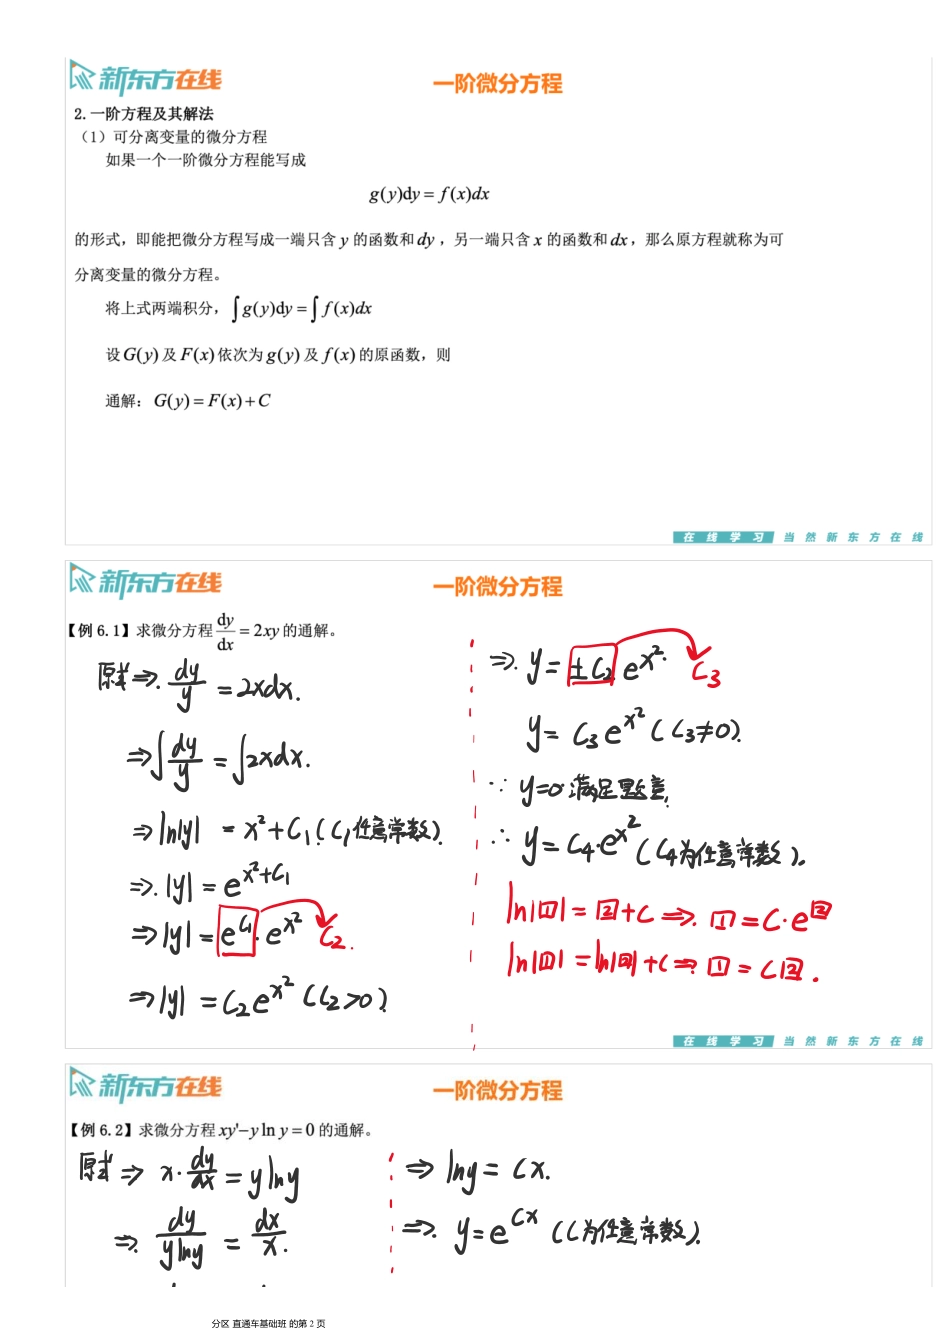 新东方在线
一阶微分方程
2. 一阶方程及其解法
（1）可分离变量的微分方程
如果一个一阶微分方程能写成
g(y)dy = f(x)dx
的形式，即能把微分方程写成一端只含 y 的函数和 dy，另一端只含 x 的函数和 dx，那么原方程就称为可
分离变量的微分方程。
将上式两端积分，∫g(y)dy = ∫f(x)dx
设 G(y) 及 F(x) 依次为 g(y) 及 f(x) 的原函数，则
通解：G(y) = F(x) + C
在线学习 当然新东方在线
新东方在线
一阶微分方程
【例 6.1】求微分方程 dy/dx = 2xy 的通解。
原式⇒. dy/y = 2xdx.
⇒∫dy/y = ∫2xdx.
⇒ ln|y| = x²+C₁ (C₁任意常数).
⇒. |y| = e^(x²+C₁)
⇒ |y| = e^(C₁)·e^(x²) C₂.
⇒ |y| = C₂e^(x²) (C₂>0).
⇒. y = ±C₂ e^(x²). C₃
y = C₃e^(x²) (C₃≠0).
∵ y=0 满足
∴ y = C₄·e^(x²) (C₄为任意常数).
ln|①| = ②+C ⇒. ① = C·e^②
ln|①| = ln|②|+C ⇒ ① = C②.
在线学习 当然新东方在线
新东方在线
一阶微分方程
【例 6.2】求微分方程 xy'−y ln y = 0 的通解。
原式⇒ x·dy/dx = y lny
⇒. dy/(y lny) = dx/x.
⇒ lny = Cx.
⇒. y = e^(Cx) (C为任意常数).
分区 直通车基础班 的第 2 页